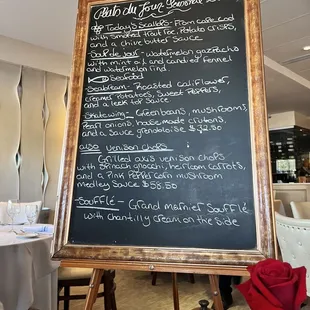 Plats du Jour
Today's Scallops - From cape cod
with smoked trout roe, potato crisps,
and a chive butter sauce
Soup du jour - watermelon gazpacho
with mint oil and candied fennel
and watermelon rind.
Seafood
Seabream - Roasted califlower,
creamed potatoes, sweet peppers,
and a leek tof sauce
Skatewing - Greenbeans, mushrooms,
pearl onions, housemade crutons,
and a sauce grenobloise $32.50
also Venison Chops
Grilled axis venison chops
with spinach gnocchi, heirloom carrots,
and a pink peppercorn mushroom
medley sauce $58.50
Soufflé - Grand marnier Soufflé
with chantilly cream on the side